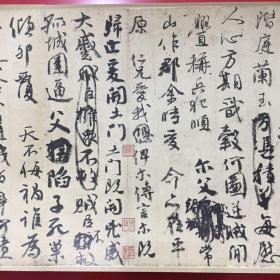 階庭蘭玉方憑積善每慰
人心方期戩穀何圖逆賊閒
釁稱兵犯順爾父常
山作郡余時受命亦在平
原仁兄愛我俾爾傳言爾既
歸止爰開土門土門既開凶威
大蹙賊臣擁眾不救賊臣不救
孤城圍逼父陷子死巢
傾卵覆天不悔禍誰為
百身何贖